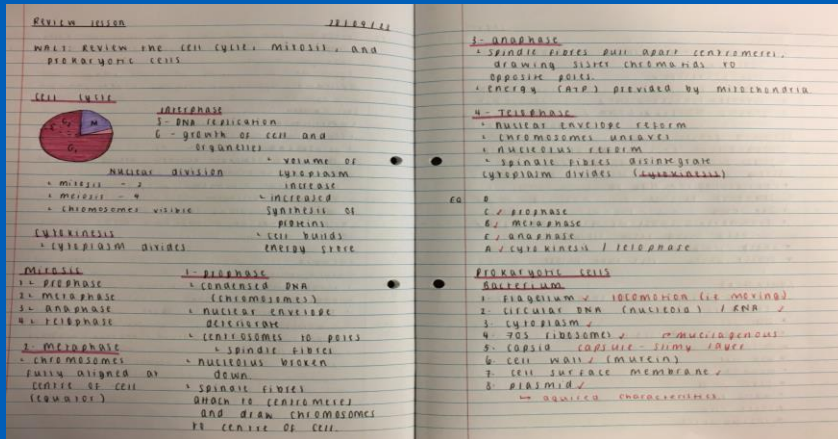 Review lesson
WALT: Review the cell cycle, mitosis, and
prokaryotic cells
Cell cycle
G₂
M
S
G₁
Interphase
S - DNA replication
G - growth of cell and
organelles
- volume of
cytoplasm
increase
- increased
synthesis of
proteins
- cell builds
energy store
Nuclear division
- mitosis - 2
- meiosis - 4
- chromosomes visible
Cytokinesis
- cytoplasm divides
Mitosis
1- prophase
2- metaphase
3- anaphase
4- telophase
2- Metaphase
- chromosomes
fully aligned at
centre of cell
(equator)
1- prophase
- condensed DNA
(chromosomes)
- nuclear envelope
deteriorate
- centrosomes to poles
- spindle fibres
- nucleolus broken
down.
- spindle fibres
attach to centromeres
and draw chromosomes
to centre of cell.
3- anaphase
- spindle fibres pull apart centromeres,
drawing sister chromatids to
opposite poles.
- energy (ATP) provided by mitochondria
4- Telophase
- nuclear envelope reform
- chromosomes unravel
- nucleolus reform
- spindle fibres disintegrate
cytoplasm divides (cytokinesis)
EQ D
C ✓ prophase
B ✓ metaphase
E ✓ anaphase
A ✓ cytokinesis / telophase
Prokaryotic cells
Bacterium
1. Flagellum ✓ locomotion (ie moving)
2. circular DNA (nucleoid) / RNA ✓
3. cytoplasm ✓
4. 70s ribosomes ✓ mucilagenous
5. capsid capsule - slimy layer
6. cell wall ✓ (murein)
7. cell surface membrane ✓
8. plasmid ✓
↳ aquired characteristics